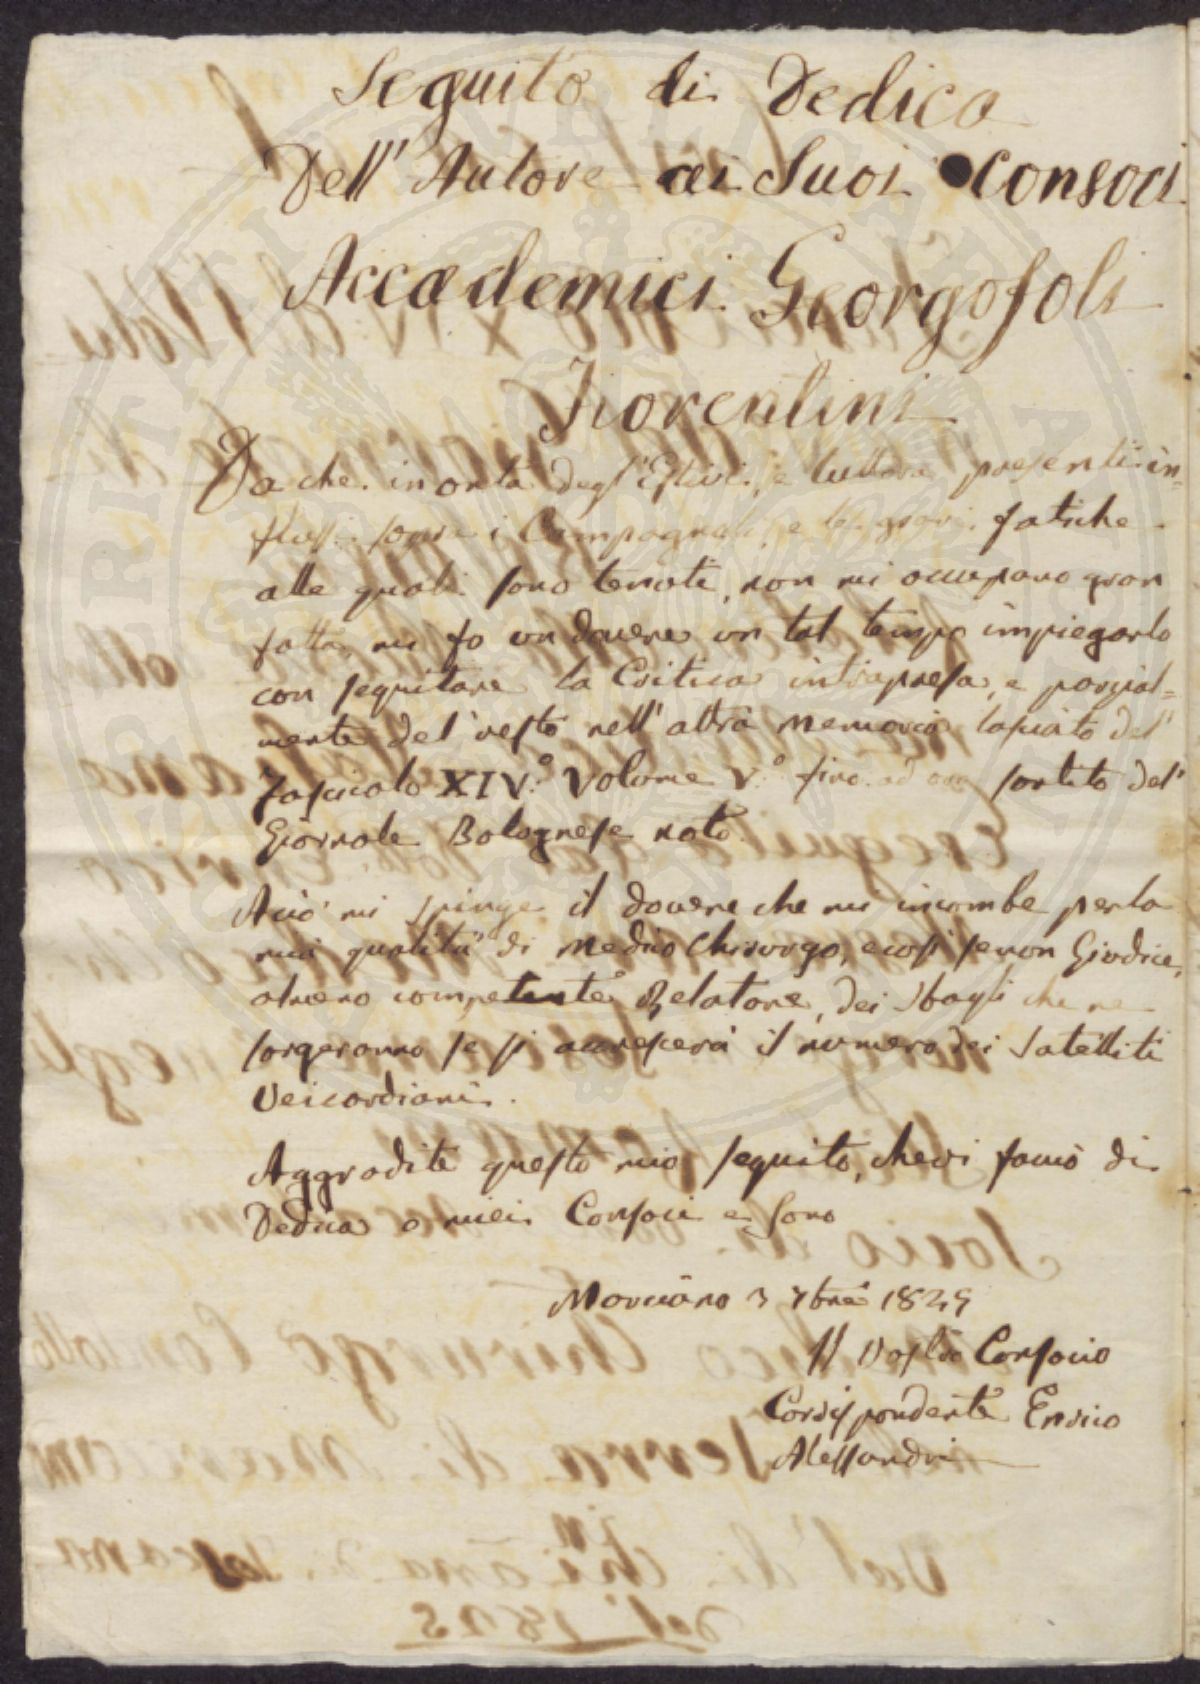 Seguito di Dedica
Dell' Autore ai Suoi Consoci
Accademici Georgofoli
Fiorentini
Da che in onta degl'Estivi, e tuttora presenti in=
flussi sopra i Campagnoli, e le gravi fatiche
alle quali sono tenuti, non mi occupano gran
fatto, mi fo un dovere un tal tempo impiegarlo
con seguitare la Critica intrapresa, e parzial=
mente del resto nell'altra memoria lasciato del'
Fascicolo XIV.° Volume V.° fino ad ora sortito del'
Giornale Bolognese noto.
Acciò mi spinge il dovere che mi incombe per la
mia qualità di Medico Chirurgo, e così se non Giudice,
almeno competente Relatore, dei sbagli che ne
sorgeranno se si accrescerà il numero dei Satelliti
Veicordiani.
Aggradite questo mio seguito, che vi faccio di
Dedica o miei Consoci e sono
Marciano 3 7bre 1825
Il Vostro Consocio
Corrispondente Enrico
Alessandri